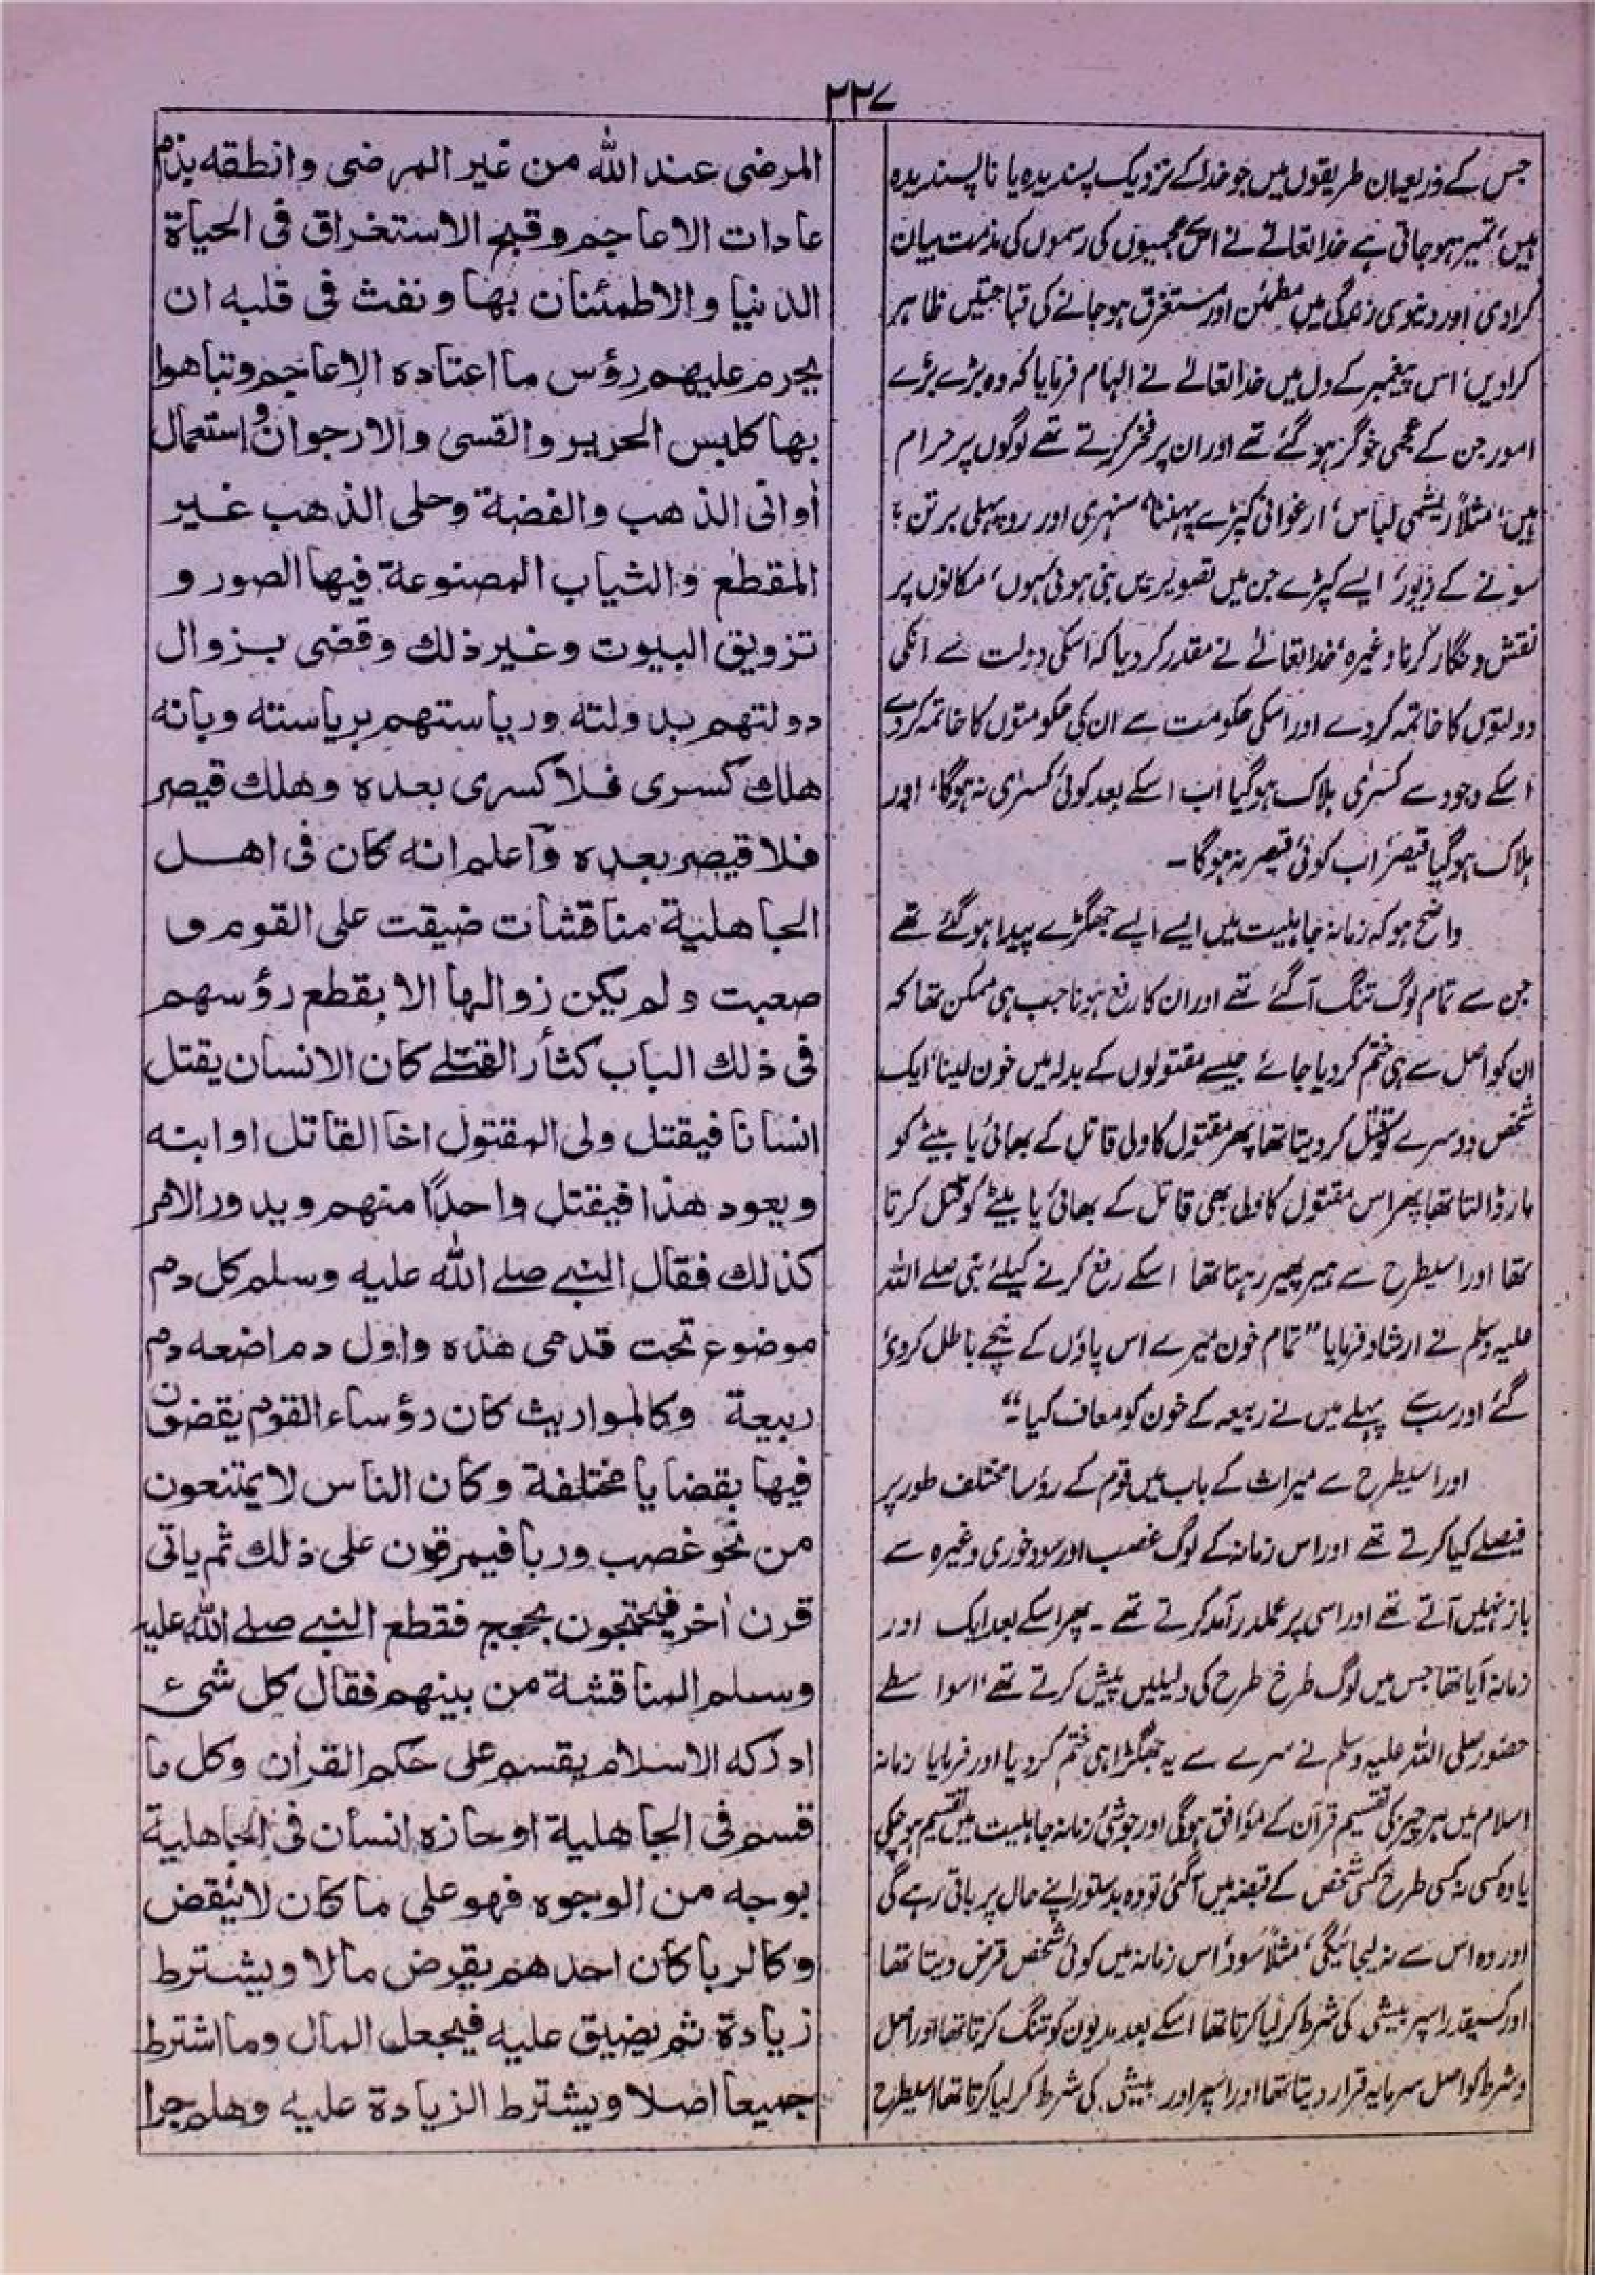 ۲۲۷
جس کے ذریعہ ان طریقوں میں جو خدا کے نزدیک پسندیدہ یا ناپسندیدہ
ہیں، تمیز ہو جاتی ہے خدا تعالےٰ نے اس عجمیوں کی رسموں کی مذمت بیان
کرادی اور دنیوی زندگی میں مطمئن اور مستغرق ہو جانے کی قباحتیں ظاہر
کرادیں، اس پیغمبر کے دل میں خدا تعالےٰ نے الہام فرمایا کہ وہ بڑے بڑے
امور جن کے عجمی خوگر ہو گئے تھے اور ان پر فخر کرتے تھے لوگوں پر حرام
ہیں، مثلاً ریشمی لباس، ارغوانی کپڑے پہننا، سنہری اور روپہلی برتن،
سونے کے زیور، ایسے کپڑے جن میں تصویریں بنی ہوئی ہوں، مکانوں پر
نقش و نگار کرنا وغیرہ، خدا تعالےٰ نے مقدر کر دیا کہ اسکی دولت سے انکی
دولتوں کا خاتمہ کر دے اور اسکی حکومت سے ان کی حکومتوں کا خاتمہ کر دے
اسکے وجود سے کسریٰ ہلاک ہو گیا اب اسکے بعد کوئی کسریٰ نہ ہوگا، اور
ہلاک ہو گیا قیصر، اب کوئی قیصر نہ ہوگا۔
واضح ہو کہ زمانہ جاہلیت میں ایسے ایسے جھگڑے پیدا ہو گئے تھے
جن سے تمام لوگ تنگ آگئے تھے اور ان کا رفع ہونا جب ہی ممکن تھا کہ
ان کو اصل سے ہی ختم کر دیا جائے جیسے مقتولوں کے بدلہ میں خون لینا، ایک
شخص دوسرے کو قتل کر دیتا تھا پھر مقتول کا ولی قاتل کے بھائی یا بیٹے کو
مار ڈالتا تھا پھر اس مقتول کا ولی بھی قاتل کے بھائی یا بیٹے کو قتل کرتا
تھا اور اسیطرح سے ہیر پھیر رہتا تھا اسکے رفع کرنے کیلئے نبی صلے اللہ
علیہ وسلم نے ارشاد فرمایا ”تمام خون میرے اس پاؤں کے نیچے باطل کردئ
گئے اور سب سے پہلے میں نے ربیعہ کے خون کو معاف کیا۔“
اور اسیطرح سے میراث کے باب میں قوم کے رؤسا مختلف طور پر
فیصلے کیا کرتے تھے اور اس زمانہ کے لوگ غصب اور سود خوری وغیرہ سے
باز نہیں آتے تھے اور اسی پر عملدرآمد کرتے تھے۔ پھر اسکے بعد ایک اور
زمانہ آیا تھا جس میں لوگ طرح طرح کی دلیلیں پیش کرتے تھے، اسواسطے
حضور صلی اللہ علیہ وسلم نے سرے سے یہ جھگڑا ہی ختم کر دیا اور فرمایا زمانہ
اسلام میں ہر چیز کی تقسیم قرآن کے موافق ہوگی اور جو شئ زمانہ جاہلیت میں تقسیم ہو چکی
یا وہ کسی نہ کسی طرح کسی شخص کے قبضہ میں آگئی تو وہ بدستور اپنے حال پر باقی رہے گی
اور وہ اس سے نہ لیجائیگی، مثلاً سود، اس زمانہ میں کوئی شخص قرض دیتا تھا
اور کسیقدر اسپر بیشی کی شرط کر لیا کرتا تھا اسکے بعد مدیون کو تنگ کرتا تھا اور اصل
و شرط کو اصل سرمایہ قرار دیتا تھا اور اسپر اور بیشی کی شرط کر لیا کرتا تھا اسیطرح
المرضی عند الله من غیر المرضی وانطقه بذم
عادات الاعاجم وقبح الاستغراق فی الحیاة
الدنیا والاطمئنان بها ونفث فی قلبه ان
یحرم علیهم رؤس ما اعتاده الاعاجم وتباهوا
بها کلبس الحریر والقسی والارجوان واستعمال
أوانی الذهب والفضة وحلی الذهب غیر
المقطع والثیاب المصنوعة فیها الصور و
تزویق البیوت وغیر ذلك وقضی بزوال
دولتهم بدولته وریاستهم بریاسته وبانه
هلك کسری فلا کسری بعده وهلك قیصر
فلا قیصر بعده وٓاعلم انه کان فی اهل
الجاهلیة مناقشات ضیقت علی القوم و
صعبت ولم یکن زوالها الا بقطع رؤسهم
فی ذلك الباب کثأر القتلے کان الانسان یقتل
انسانا فیقتل ولی المقتول اخا القاتل او ابنه
ویعود هذا فیقتل واحدًا منهم ویدور الامر
کذلك فقال النبے صلے الله علیه وسلم کل دم
موضوع تحت قدمی هذه واول دم اضعه دم
ربیعة وکالمواریث کان رؤساء القوم یقضون
فیها بقضایا مختلفة وکان الناس لا یمتنعون
من نحو غصب وربا فیمرقون علی ذلك ثم یاتی
قرن اٰخر فیحتجون بحجج فقطع النبے صلے الله علیه
وسلم المناقشة من بینهم فقال کل شیٔ
ادرکه الاسلام یقسم علی حکم القراٰن وکل ما
قسم فی الجاهلیة او حازه انسان فی الجاهلیة
بوجه من الوجوه فهو علی ما کان لا ینقض
وکالربا کان احدهم یقرض مالا ویشترط
زیادة ثم یضیق علیه فیجعل المال وما اشترط
جمیعا اصلا ویشترط الزیادة علیه وهلم جرا